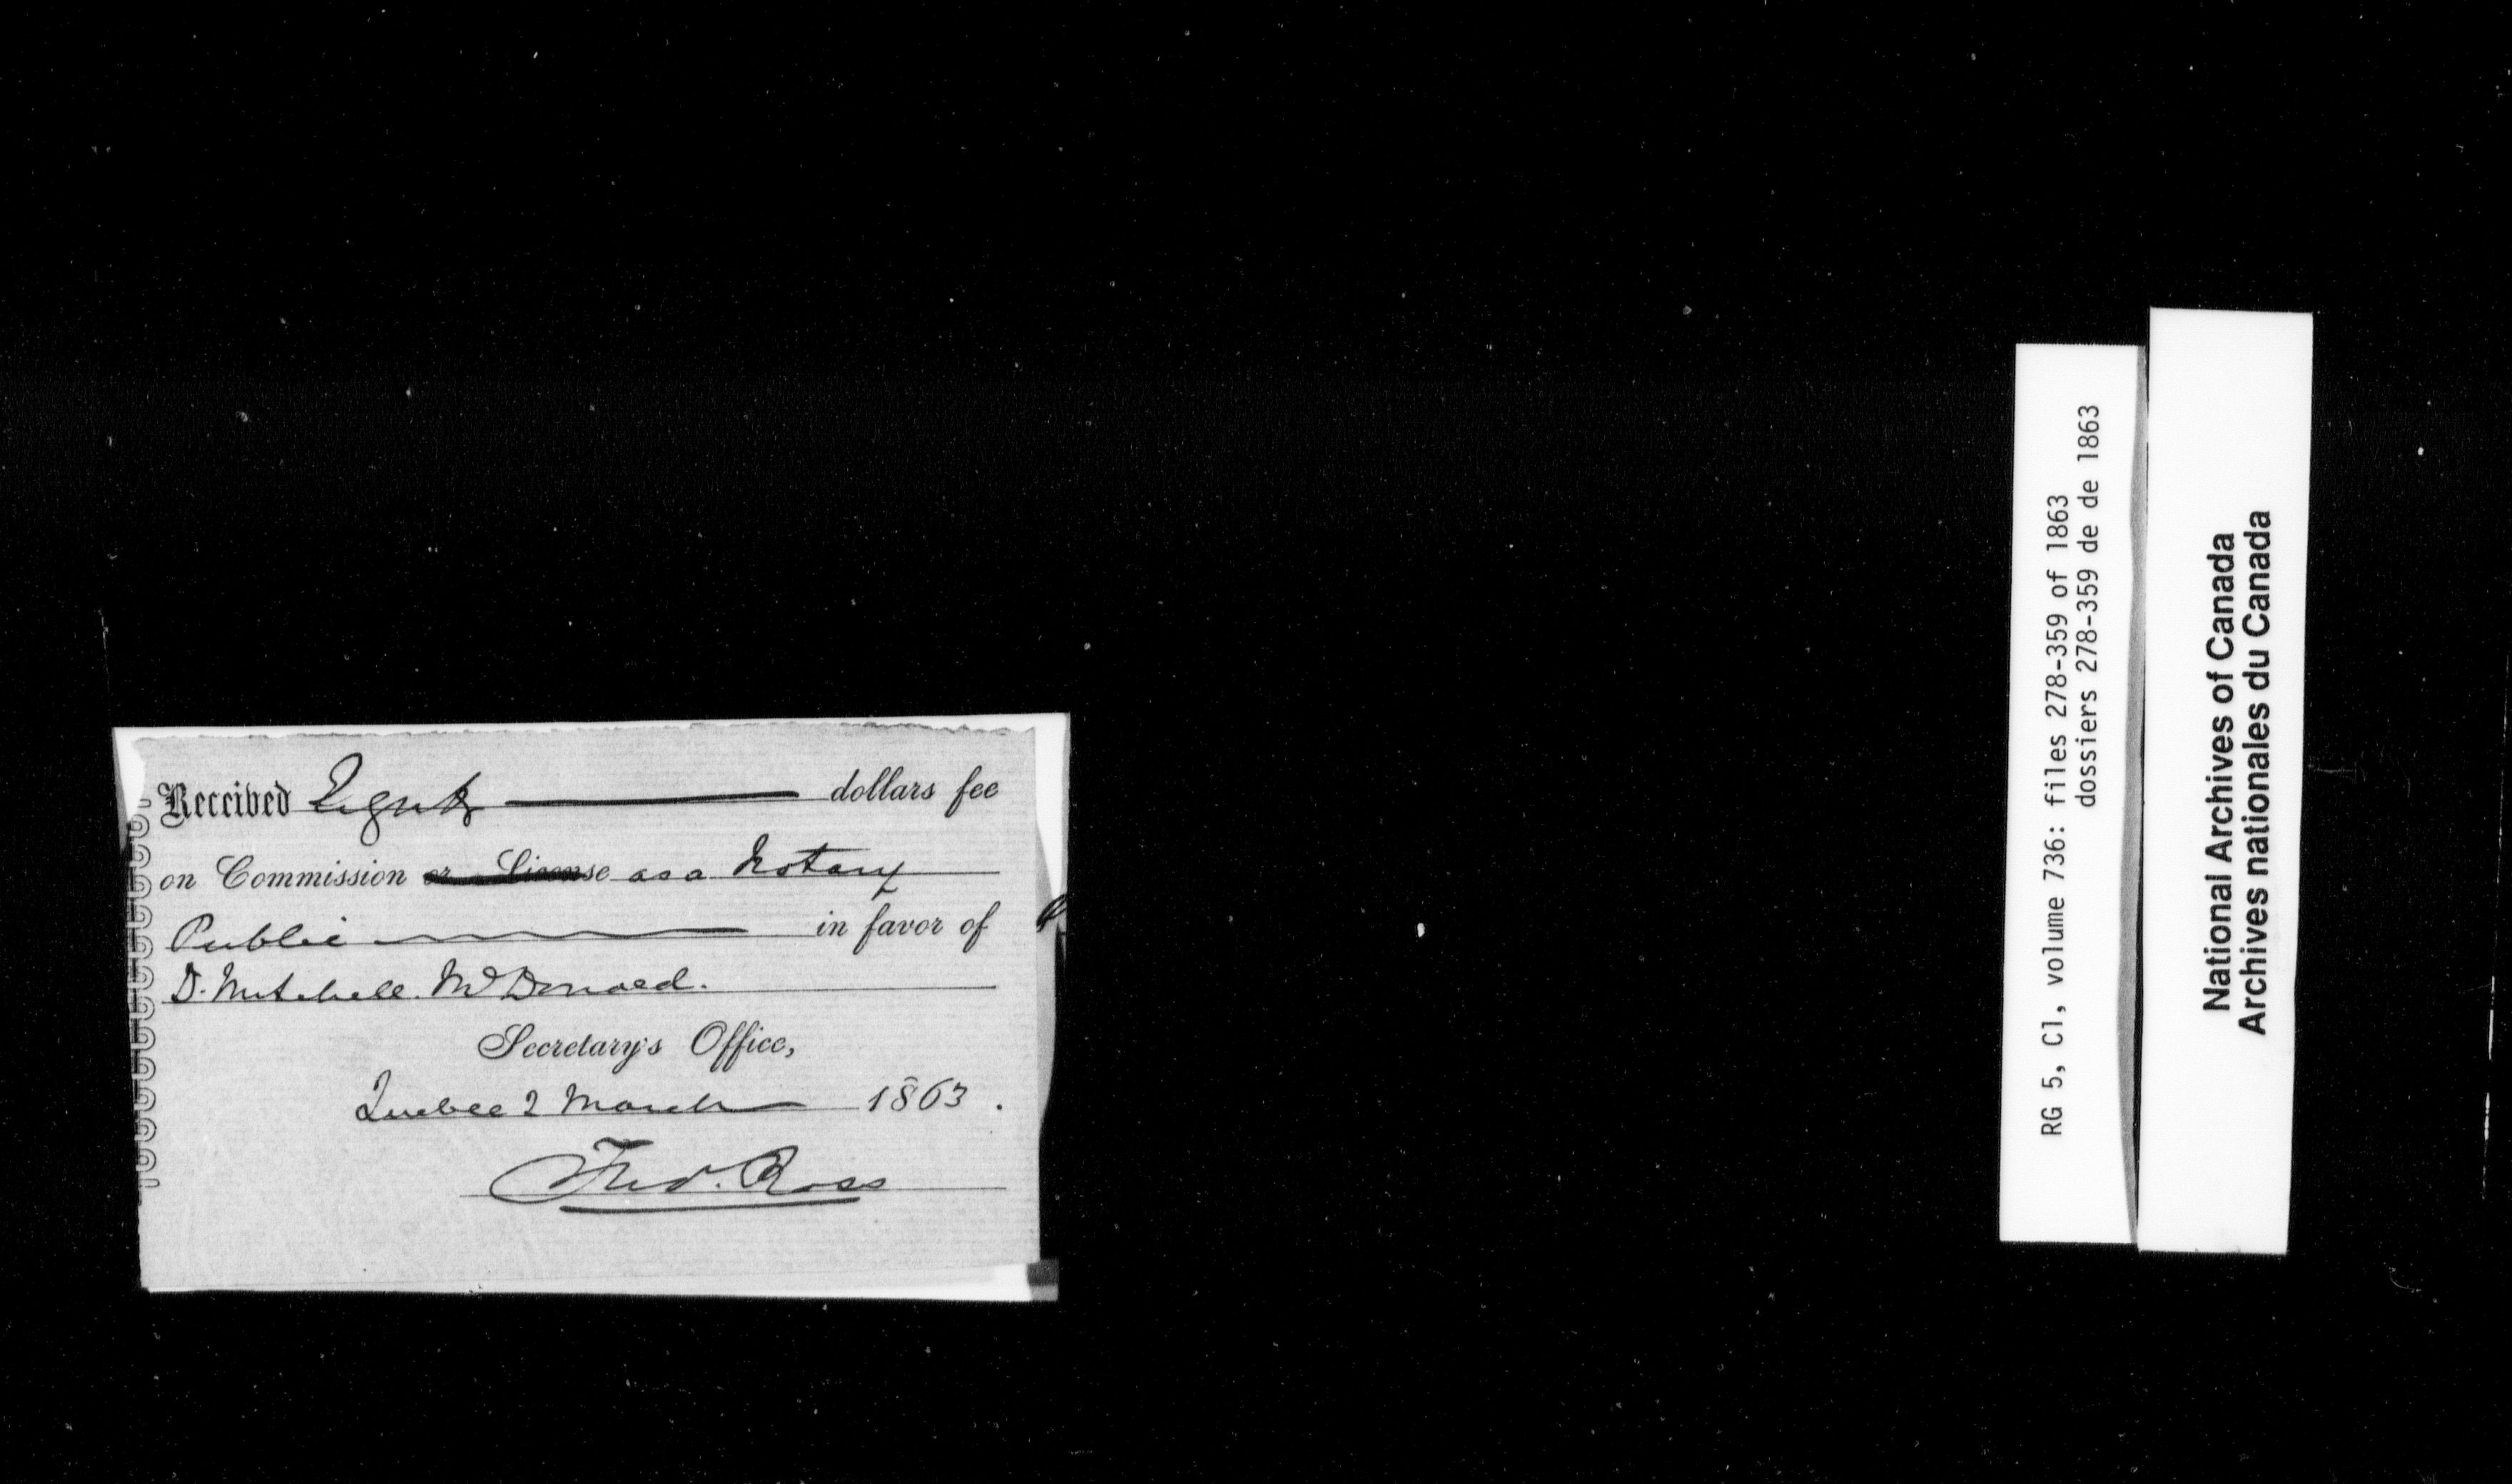 Received Eight dollars fee
on Commission or License as a Notary
Public in favor of
D. Mitchell McDonald.
Secretary's Office,
Quebec 2 March 1863.
Fred. Ross
RG 5, C1, volume 736: files 278-359 of 1863
dossiers 278-359 de de 1863
National Archives of Canada
Archives nationales du Canada